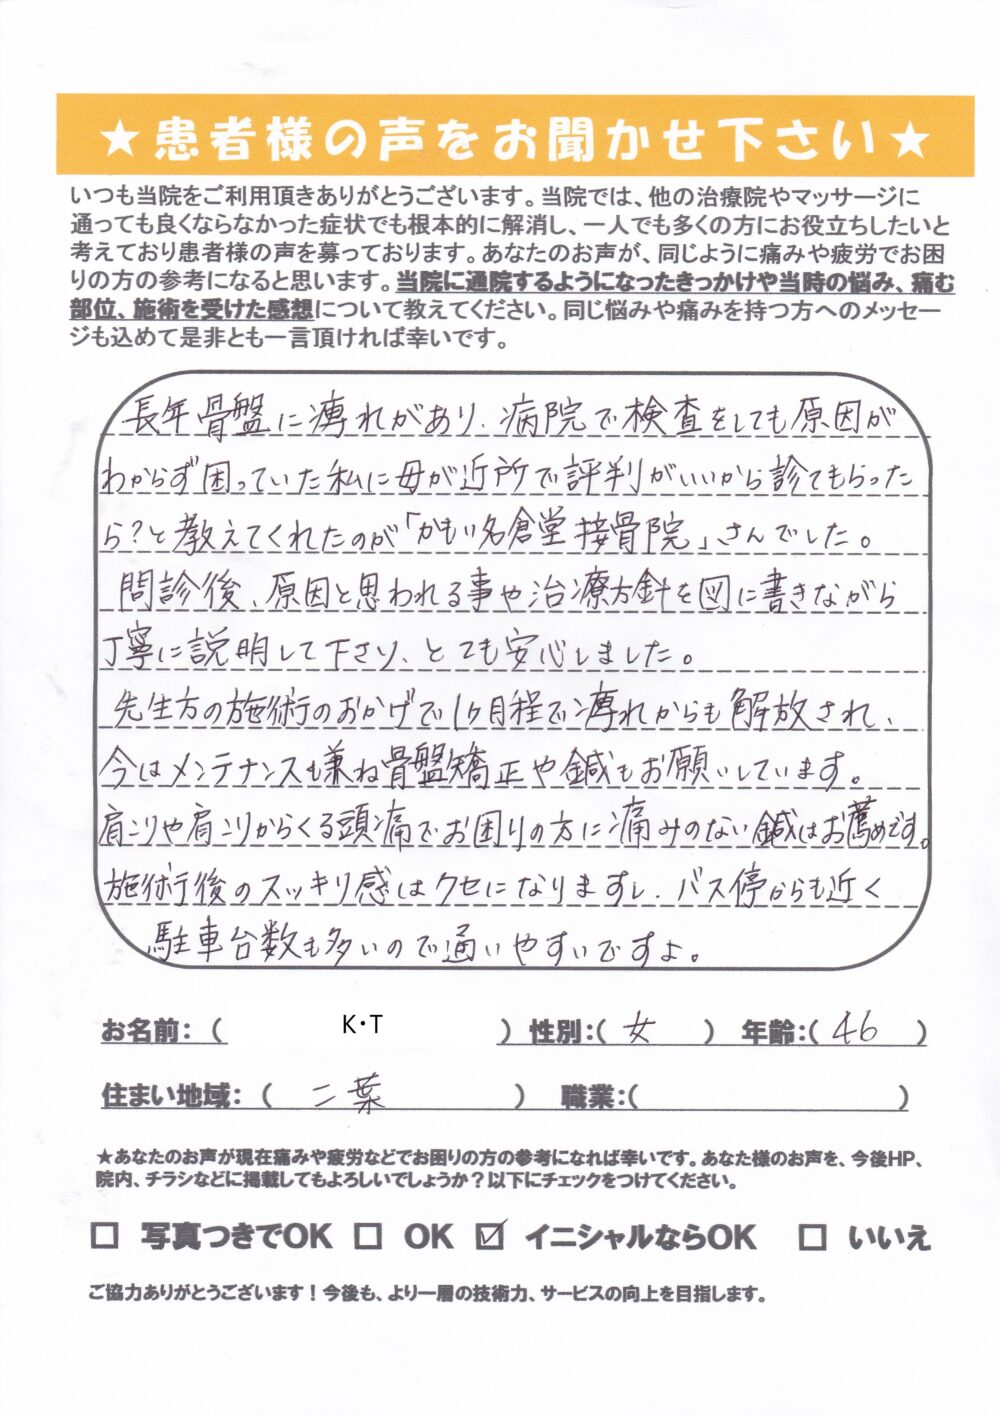 ★患者様の声をお聞かせ下さい★
いつも当院をご利用頂きありがとうございます。当院では、他の治療院やマッサージに
通っても良くならなかった症状でも根本的に解消し、一人でも多くの方にお役立ちしたいと
考えており患者様の声を募っております。あなたのお声が、同じように痛みや疲労でお困
りの方の参考になると思います。当院に通院するようになったきっかけや当時の悩み、痛む
部位、施術を受けた感想について教えてください。同じ悩みや痛みを持つ方へのメッセー
ジも込めて是非とも一言頂ければ幸いです。
長年骨盤に痺れがあり、病院で検査をしても原因が
わからず困っていた私に母が近所で評判がいいから診てもらった
ら?と教えてくれたのが「かもい名倉堂接骨院」さんでした。
問診後、原因と思われる事や治療方針を図に書きながら
丁寧に説明して下さり、とても安心しました。
先生方の施術のおかげで1ヶ月程で痺れからも解放され、
今はメンテナンスも兼ね骨盤矯正や鍼もお願いしています。
肩こりや肩こりからくる頭痛でお困りの方に痛みのない鍼はお薦めです。
施術後のスッキリ感はクセになりますし、バス停からも近く
駐車台数も多いので通いやすいですよ。
お名前:( K・T ) 性別:( 女 ) 年齢:( 46 )
住まい地域:( 二葉 ) 職業:( )
★あなたのお声が現在痛みや疲労などでお困りの方の参考になれば幸いです。あなた様のお声を、今後HP、
院内、チラシなどに掲載してもよろしいでしょうか?以下にチェックをつけてください。
□ 写真つきでOK □ OK ☑ イニシャルならOK □ いいえ
ご協力ありがとうございます!今後も、より一層の技術力、サービスの向上を目指します。